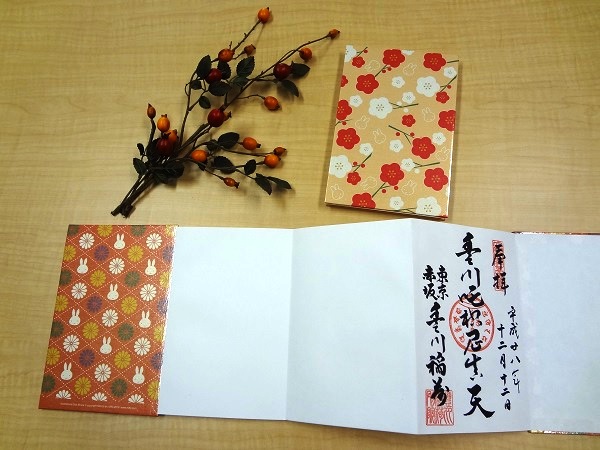 奉拝
平成廿八年
十二月十二日
豊川吒枳尼真天
東京
赤坂
豊川稲荷